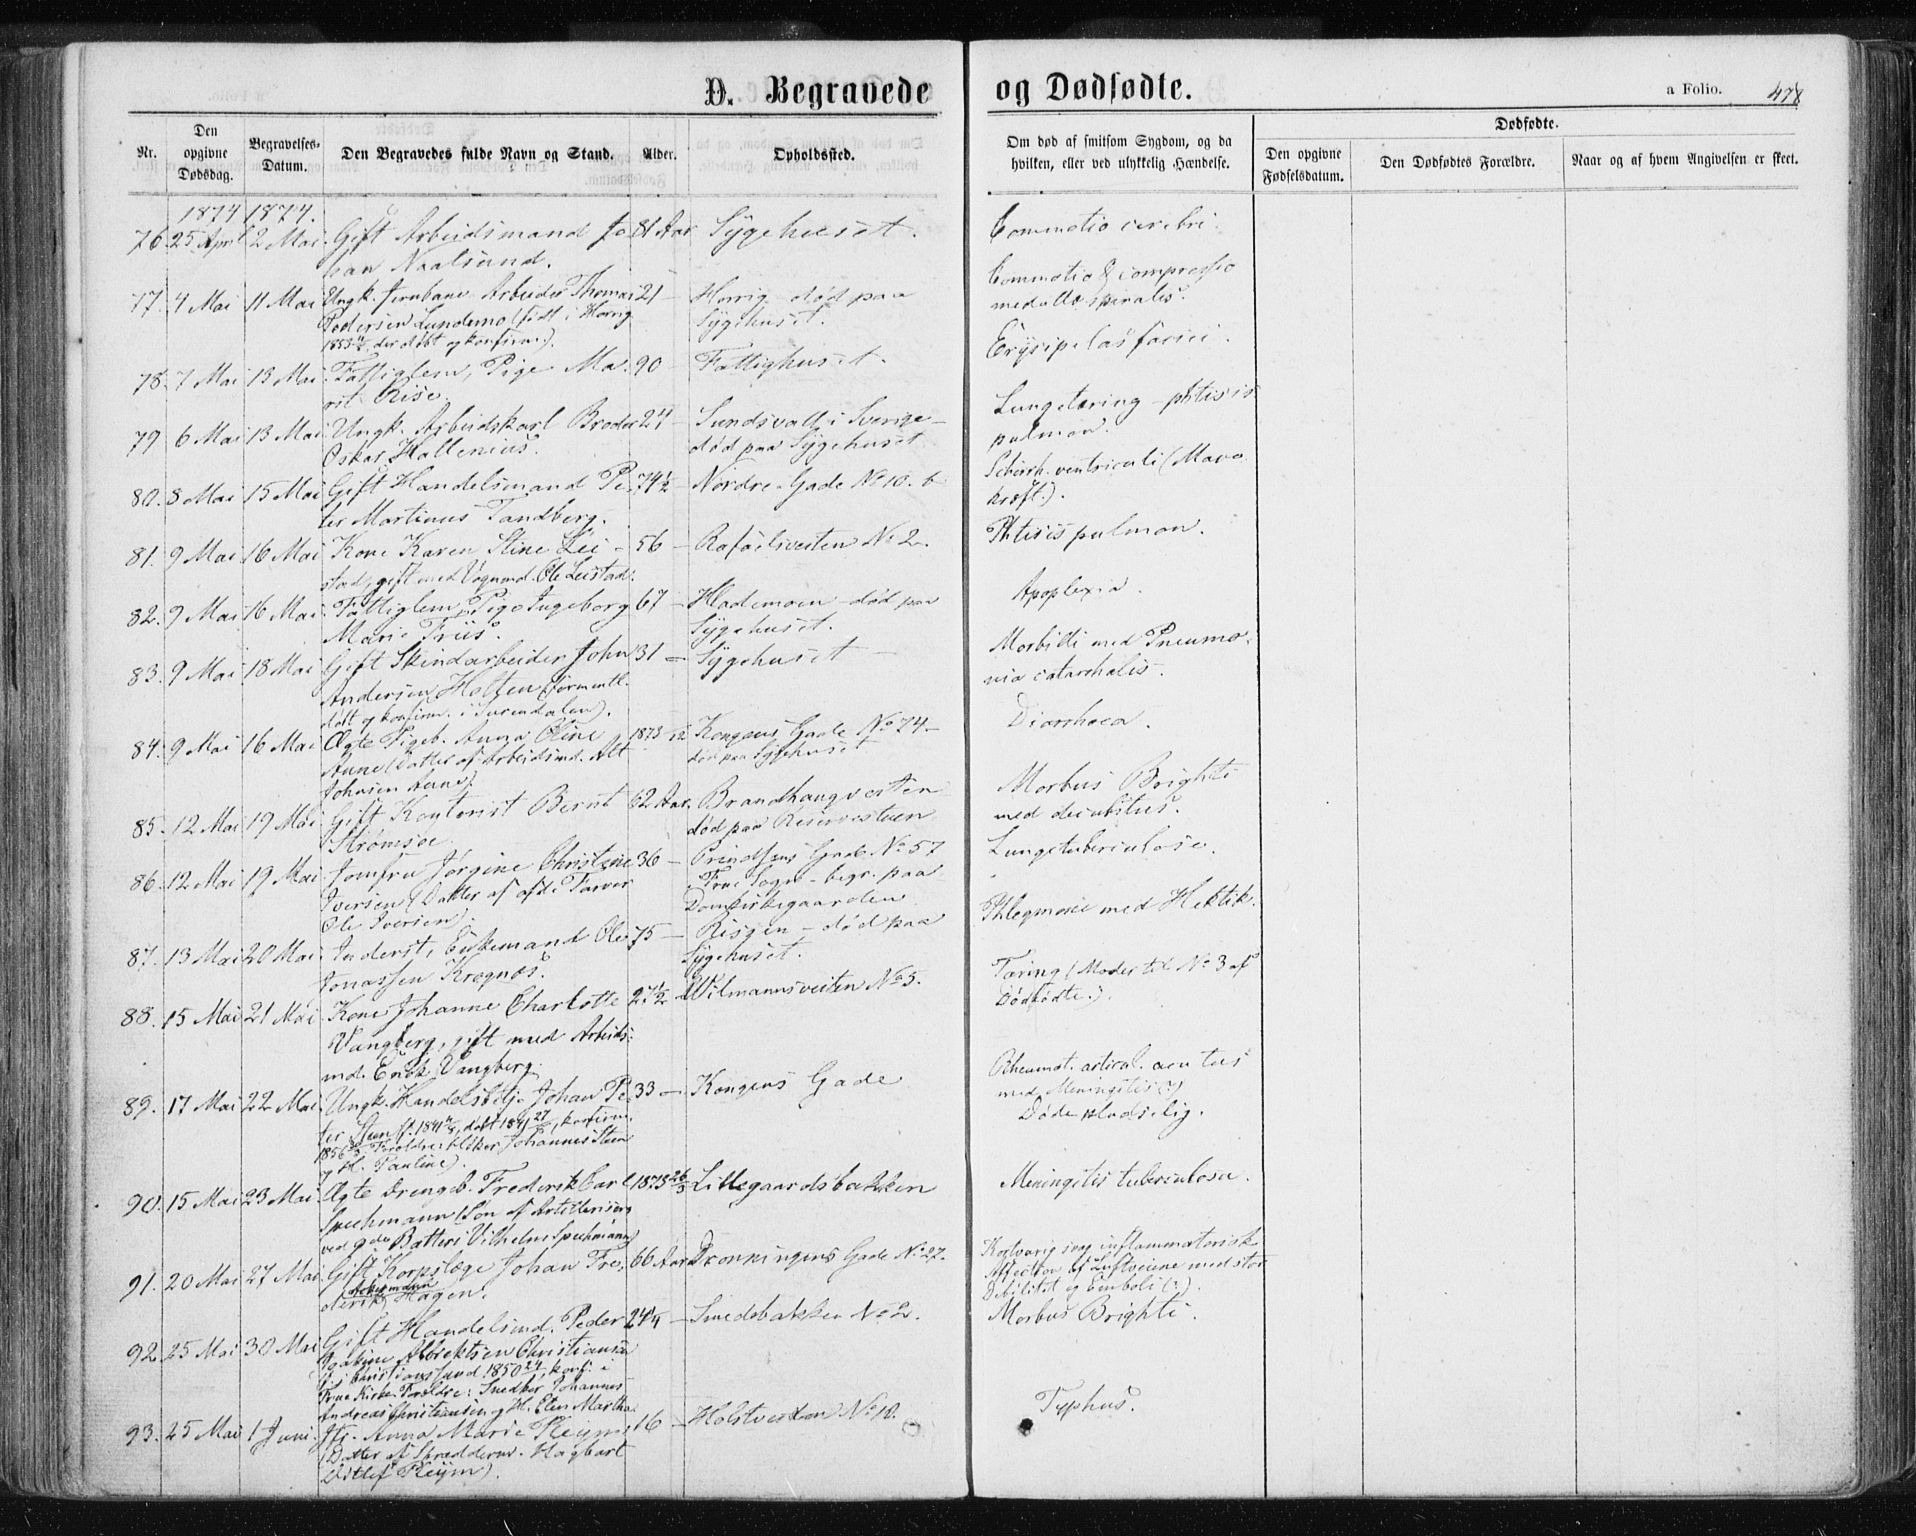 D. Begravede og Dødfødte.
a Folio. 478
Nr.
Den opgivne Dødsdag.
Begravelses-Datum.
Den Begravedes fulde Navn og Stand.
Alder.
Opholdssted.
Om død af smitsom Sygdom, og da hvilken, eller ved ulykkelig Hændelse.
Dødfødte.
Den opgivne Fødselsdatum.
Den Dødfødtes Forældre.
Naar og af hvem Angivelsen er skeet.
1874 1874.
76. 25 April 2 Mai. Gift Arbeidsmand Jo 81 Aar Sygehuset. Commotio cerebri.
han Naalsund.
77. 4 Mai 11 Mai Ungk. Jernbane Arbeider Thomas 21 - Horrig død paa Commotio & compressio
Pedersen Lundemo (født i Horrig Sygehuset. medulla spinalis.
1853 der døbt og konfirm).
78. 7 Mai 13 Mai Fattiglem, Pige Ma- 90 - Fattighuset. Erysipelas faciei.
rit Rise.
79 6 Mai 13 Mai Ungk. Arbeidskarl Broder 24 - Sundsvall i Sverige - Lungetæring - phtisis
Oskar Hallenius. død paa Sygehuset pulmon.
80. 8 Mai 15 Mai Gift Handelsmand Pe- 74 1/2 - Nordre Gade No 10. b Scirrh. ventriculi (Mave
ter Martinus Tandberg. kræft).
81. 9 Mai 16 Mai Kone Karen Stine Lei- 56 - Rafaelsveiten No 2. Phtisis pulmon.
stad, gift med Vognmd. Ole Leistad.
82. 9 Mai 16 Mai. Fattiglem, Pige Ingeborg 67 - Hlademoen - død paa Apoplexia.
Marie Friis. Sygehuset.
83. 9 Mai 18 Mai Gift Skindarbeider John 31 - Sygehuset - Morbilli med Pneumo-
Andersen Holten (formentl. nia catarrhalis.
døbt og konfirm. i Surendalen).
84. 9 Mai 16 Mai Ægte Pigeb. Anna Oline 1873 Kongens Gade No 74 - Diarrhoea.
Aune (Datter af Arbeidsmd. Alt død paa Sygehuset
Johnsen Aune)
85. 12 Mai 19 Mai Gift Kontorist Bernt 62 Aar. Brandhaugveiten Morbus Brighti
Strømsøe død paa Reservestuen med decubitus.
86. 12 Mai 19 Mai Jomfru Jørgine Christine 36 - Prindsens Gade No 57 Lungetuberculose.
Iversen (Datter af afdø Farver Frue Sogn - begr. paa
Ole Iversen). Domkirkegaarden
87. 13 Mai 20 Mai Inderst, Enkemand Ole 75 - Risgin - død paa Phlegmone med Hektik.
Jonassen Krognæs. Sygehuset.
88. 15 Mai 21 Mai Kone Johanne Charlotte 27 1/2 - Wilmannsveiten No 5. Tæring (Moder til No 3 af
Vangberg, gift med Arbeids- Dødfødte).
md. Enok Vangberg.
89. 17 Mai 22 Mai Ungk. Handelsbetj. Johan Pe- 33 - Kongens Gade Rheumat. articul. acutus
ter Steen (f. 1841, døbt 1841, konfirm. med Meningitis (?)
1856. Forældre: Johannes Steen Døde pludselig.
og H. Pauline).
90. 15 Mai 23 Mai Ægte Drengeb. Fredrik Carl 1873 26/3 Lillegaardsbakken Meningitis tuberculosa.
Speehmann (Søn af Artilleriserg
ved 9de Batteri Vilhelm Speehmann)
91. 20 Mai 27 Mai Gift Korpslæge Johan Fre- 66 Aar Dronningens Gade No 27. Kortvarig svag inflammatorisk
derik Hagen. Affection af Luftveiene med stor
Debilitet og Emboli (?).
92. 25 Mai 30 Mai Gift Handelsmd. Peder 24 1/4 - Smedbakken No 2. Morbus Brighti.
Joakim Albrektsen Christiansen
f. i Christianssund 1850, konf. i
Frue Kirke. Forældre: Snedker Johannes
Andreas Christiansen og H. Elen Martha
93. 25 Mai 1 Juni Jfr. Anna Marie Pleym 16 - Holstveiten No 10. Typhus.
(Datter af Skræderm. Hagbart
Ditlef Pleym).